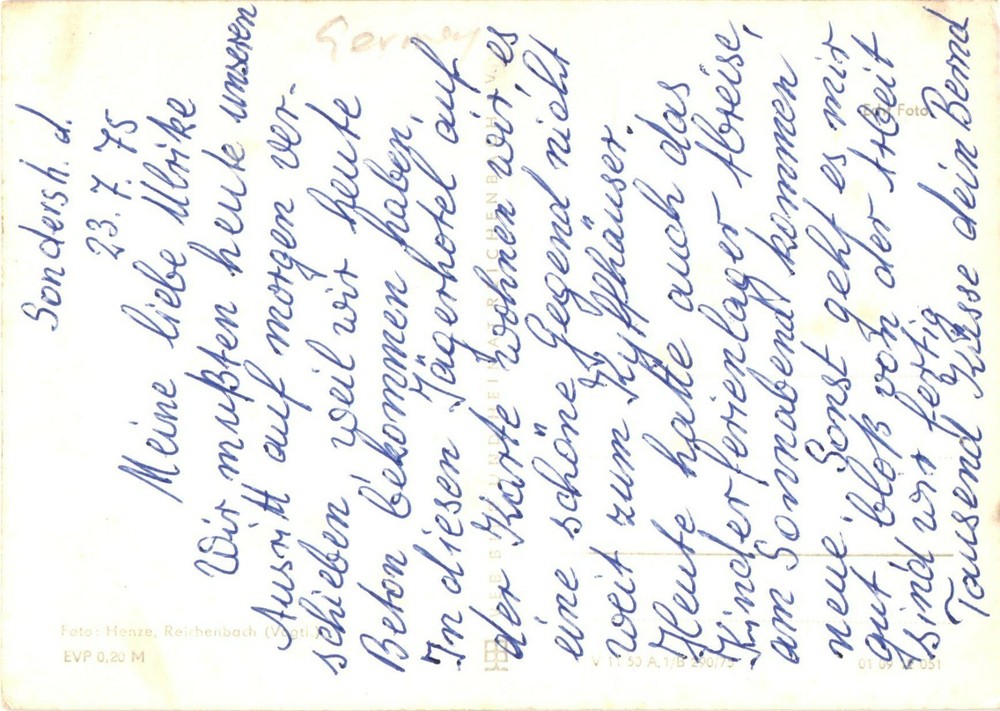 Sondersh. d.
23.7.75
Meine liebe Ulrike
Wir mußten heute unseren
Ausritt auf morgen ver-
schieben weil wir heute
Beton bekommen haben.
In diesen Jägerhotel auf
der Karte wohnen wir, es
eine schöne Gegend nicht
weit zum Kyffhäuser.
Heute hatte auch das
Kinderferienlager Abreise,
am Sonnabend kommen
neue. Sonst geht es mir
gut bloß von der Arbeit
sind wir fertig
Tausend Küsse dein Bernd
Germany
Echt Foto
VEB BILD UND HEIMAT REICHENBACH I. V.
Foto: Henze, Reichenbach (Vogtl.)
EVP 0,20 M
V 11 50 A 1/B 290/75
01 09 12 051